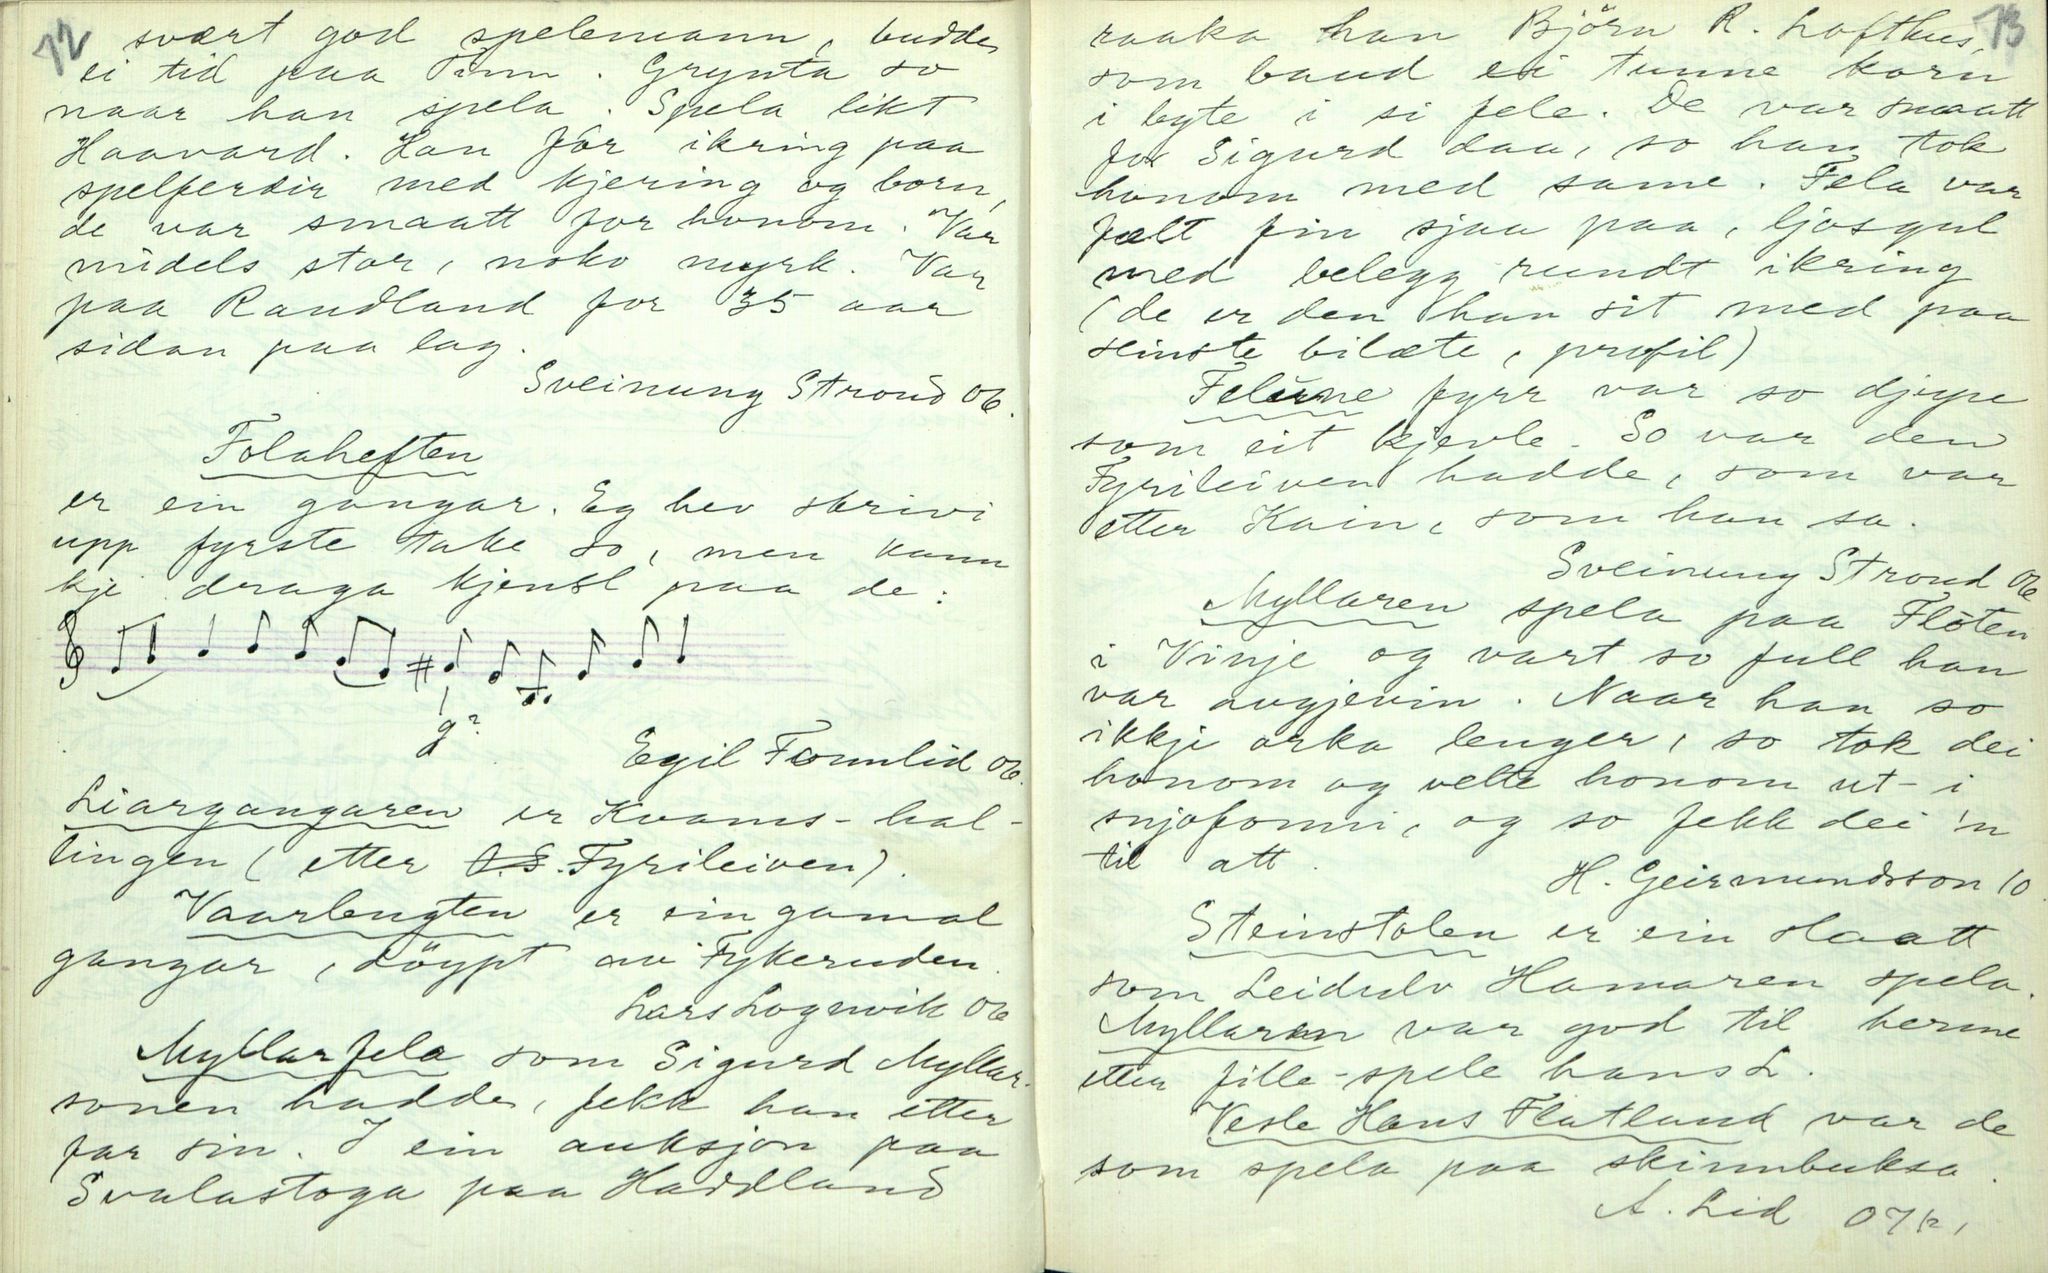 72
svært god spelemann, budde
ei tid paa Tinn. Grynta so
naar han spela. Spela likt
Haavard. Han for ikring paa
spelferdir med kjering og born,
de var smaatt for honom. Var
midels stor, noko myrk. Var
paa Raudland for 35 aar
sidan paa lag.
Sveinung Stroud 06.
Folaheften
er ein gangar. Eg hev skrivi
upp fyrste take so, men kann
kje draga kjensl paa de:
g?
Egil Fonnlid 06.
Liargangaren er Kvams-hal-
lingen (etter Fyrileiven).
Vaarlengten er ein gamal
gangar, döypt av Fykeruden.
Lars Lognvik 06
Myllarfela som Sigurd Myllar-
sonen hadde, fekk han etter
far sin. I ein auksjon paa
Svalastoga paa Haddland
73
raaka han Björn R. Lofthus,
som baud ei tunne korn
i byte i si fele. De var smaatt
for Sigurd daa, so han tok
honom med same. Fela var
fælt fin sjaa paa, ljosgul
med belegg rundt ikring
(de er den han sit med paa
seinste bilæte, profil)
Felerne fyrr var so djupe
som eit kjevle. So var den
Fyrileiven hadde, som var
etter Kain, som han sa.
Sveinung Stroud 06
Myllaren spela paa Flöten
i Vinje og vart so full han
var avgjevin. Naar han so
ikkje orka lenger, so tok dei
honom og velte honom ut-i
snjofonni, og so fekk dei 'n
til att.
H. Geirmundsson 10
Steinstolen er ein slaatt
som Leidulv Hamaren spela.
Myllaren var god til herme
etter fille-spele hans L.
Vesle Hans Flatland var de
som spela paa skinnbuksa.
A. Lid 07